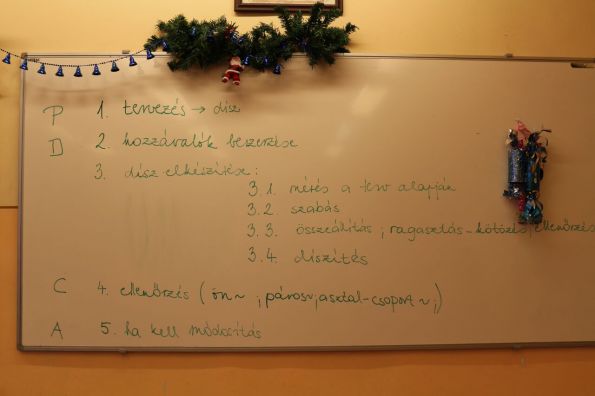 P 1. tervezés → dísz
D 2. hozzávalók beszerzése
3. dísz elkészítése:
3.1. mérés a terv alapján
3.2. szabás
3.3. összeállítás, ragasztás-kötözés, ellenőrzés
3.4. díszítés
C 4. ellenőrzés (ön~ ; páros~; asztal-csoport ~;)
A 5. ha kell módosítás